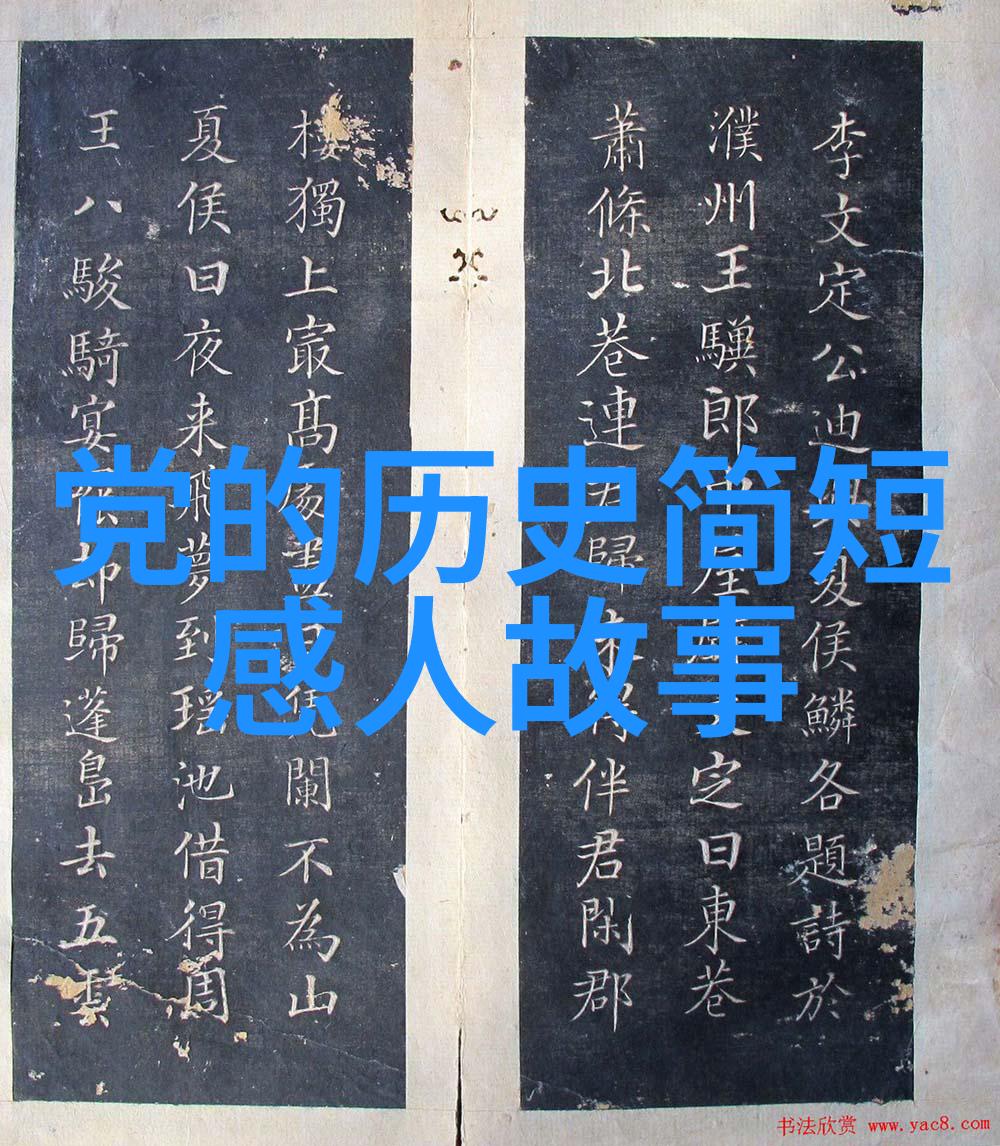 党的历史简短
感人故事
李文定公迪夏侯鱗各題詩於
濮州王驥郎定曰東巷
蕭條北巷連歸伴君閑郡
樓獨上寂髙闌不為山
夏侯曰夜来飛夢到瑶池借得周
王八駿騎宴却歸蓬島去五雲
书法欣赏 www.yac8.com